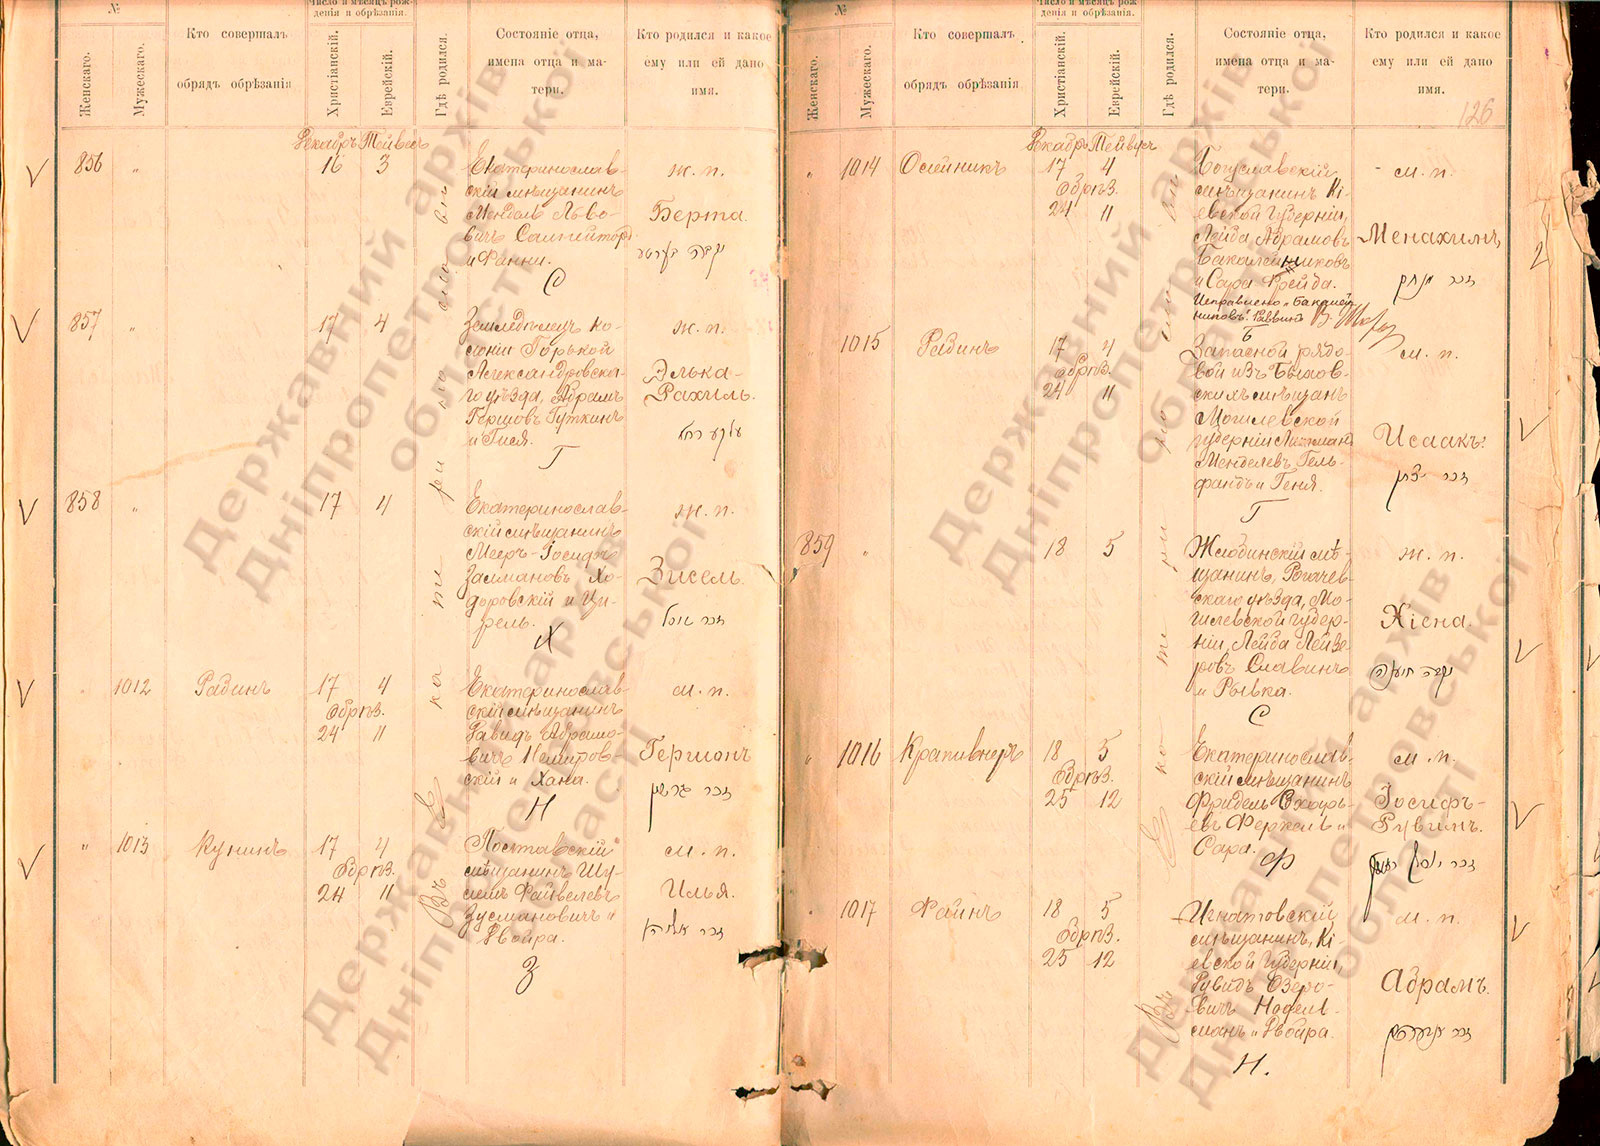 №
Женскаго.
Мужескаго.
Кто совершалъ
обрядъ обрѣзанія
Число и мѣсяцъ рож-
денія и обрѣзанія.
Христіанскій.
Еврейскій.
Гдѣ родился.
Состояніе отца,
имена отца и ма-
тери.
Кто родился и какое
ему или ей дано
имя.
Декабрь Тейвесъ
856 „ 16 3
Екатеринослав-
скій мѣщанинъ
Мендель Льво-
вичъ
и Фанни.
С
ж. п.
Берта.
857 „ 17 4
Земледѣлецъ ко-
лоніи Горькой
Александровска-
го уѣзда, Абрамъ
Гершовъ Гуткинъ
и Гися.
Г
ж. п.
Элька-
Рахиль.
858 „ 17 4
Екатеринослав-
скій мѣщанинъ
Мееръ-Іосифъ
Залмановъ Хо-
доровскій и Ци-
рель.
Х
ж. п.
Зисель.
1012 Радинъ 17 4
Обрѣз.
24 11
Екатеринослав-
скій мѣщанинъ
Давидъ Абрамо-
вичъ Немиров-
скій и Хана.
Н
м. п.
Гершонъ
זכר גרשון
„ 1013 Кунинъ 17 4
Обрѣз.
24 11
Поставскій
мѣщанинъ Шу-
лемъ Файвелевъ
Зусмановичъ и
Двойра.
З
м. п.
Илья.
זכר אליהו
Въ Екатеринославѣ
№
Женскаго.
Мужескаго.
Кто совершалъ
обрядъ обрѣзанія
Число и мѣсяцъ рож-
денія и обрѣзанія.
Христіанскій.
Еврейскій.
Гдѣ родился.
Состояніе отца,
имена отца и ма-
тери.
Кто родился и какое
ему или ей дано
имя.
126
Декабрь Тейвесъ
„ 1014 Олейникъ 17 4
Обрѣз.
24 11
Богуславскій
мѣщанинъ Кі-
евской губерніи,
Лейба Абрамовъ
Бакалейниковъ
и Сара Фрейда.
Исправлено „Бакалей-
никовъ“ Раввинъ
Б
м. п.
Менахимъ
זכר מנחם
2
„ 1015 Радинъ 17 4
Обрѣз.
24 11
Запасной рядо-
вой изъ Быхов-
скихъ мѣщанъ
Могилевской
губерніи
Менделевъ Гель-
фандъ и Геня.
Г
м. п.
Исаакъ.
זכר יצחק
859 „ 18 5
Жлобинскій мѣ-
щанинъ, Рогачев-
скаго уѣзда, Мо-
гилевской губер-
ніи, Лейба Лейзе-
ровъ Славинъ
и Рывка.
С
ж. п.
Хіена.
„ 1016 Крапивнеръ 18 5
Обрѣз.
25 12
Екатеринослав-
скій мѣщанинъ
Фридель
Феркель и
Сара.
Ф
м. п.
Іосифъ-
Рувинъ.
„ 1017 Файнъ 18 5
Обрѣз.
25 12
Игнатовскій
мѣщанинъ, Кі-
евской губерніи,
Рувидъ Озеро-
вичъ Надель-
манъ и Двойра.
Н.
м. п.
Абрамъ.
זכר אברהם
Въ Екатеринославѣ
Державний архів
Дніпропетровської
області
Державний архів
Дніпропетровської
області
Державний архів
Дніпропетровської
області
Державний архів
Дніпропетровської
області